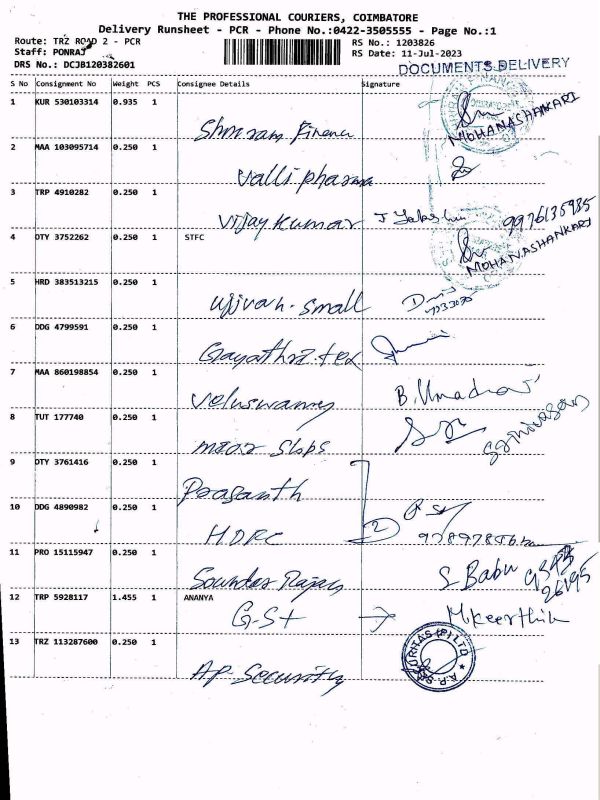 THE PROFESSIONAL COURIERS, COIMBATORE
Delivery Runsheet - PCR - Phone No.:0422-3505555 - Page No.:1
Route: TRZ ROAD 2 - PCR RS No.: 1203826
Staff: PONRAJ RS Date: 11-Jul-2023
DRS No.: DCJB120382601 DOCUMENTS DELIVERY
S No Consignment No Weight PCS Consignee Details Signature
1 KUR 530103314 0.935 1
Shriram Finance MOHANASHANKARI
2 MAA 103095714 0.250 1
Valli pharma
3 TRP 4910282 0.250 1
Vijay Kumar 9976135985
4 DTY 3752262 0.250 1 STFC MOHANASHANKARI
5 HRD 383513215 0.250 1
Ujjivan. Small
6 DDG 4799591 0.250 1
Gayathri. tex
7 MAA 860198854 0.250 1
Veluswamy B. Umadevi
8 TUT 177740 0.250 1
Srinivasan
9 DTY 3761416 0.250 1
Prasanth
10 DDG 4890982 0.250 1
HDFC 2
11 PRO 15115947 0.250 1
Soundar Rajan S Babu
12 TRP 5928117 1.455 1 ANANYA
G-St M.Keerthik
13 TRZ 113287600 0.250 1
A.P. Security